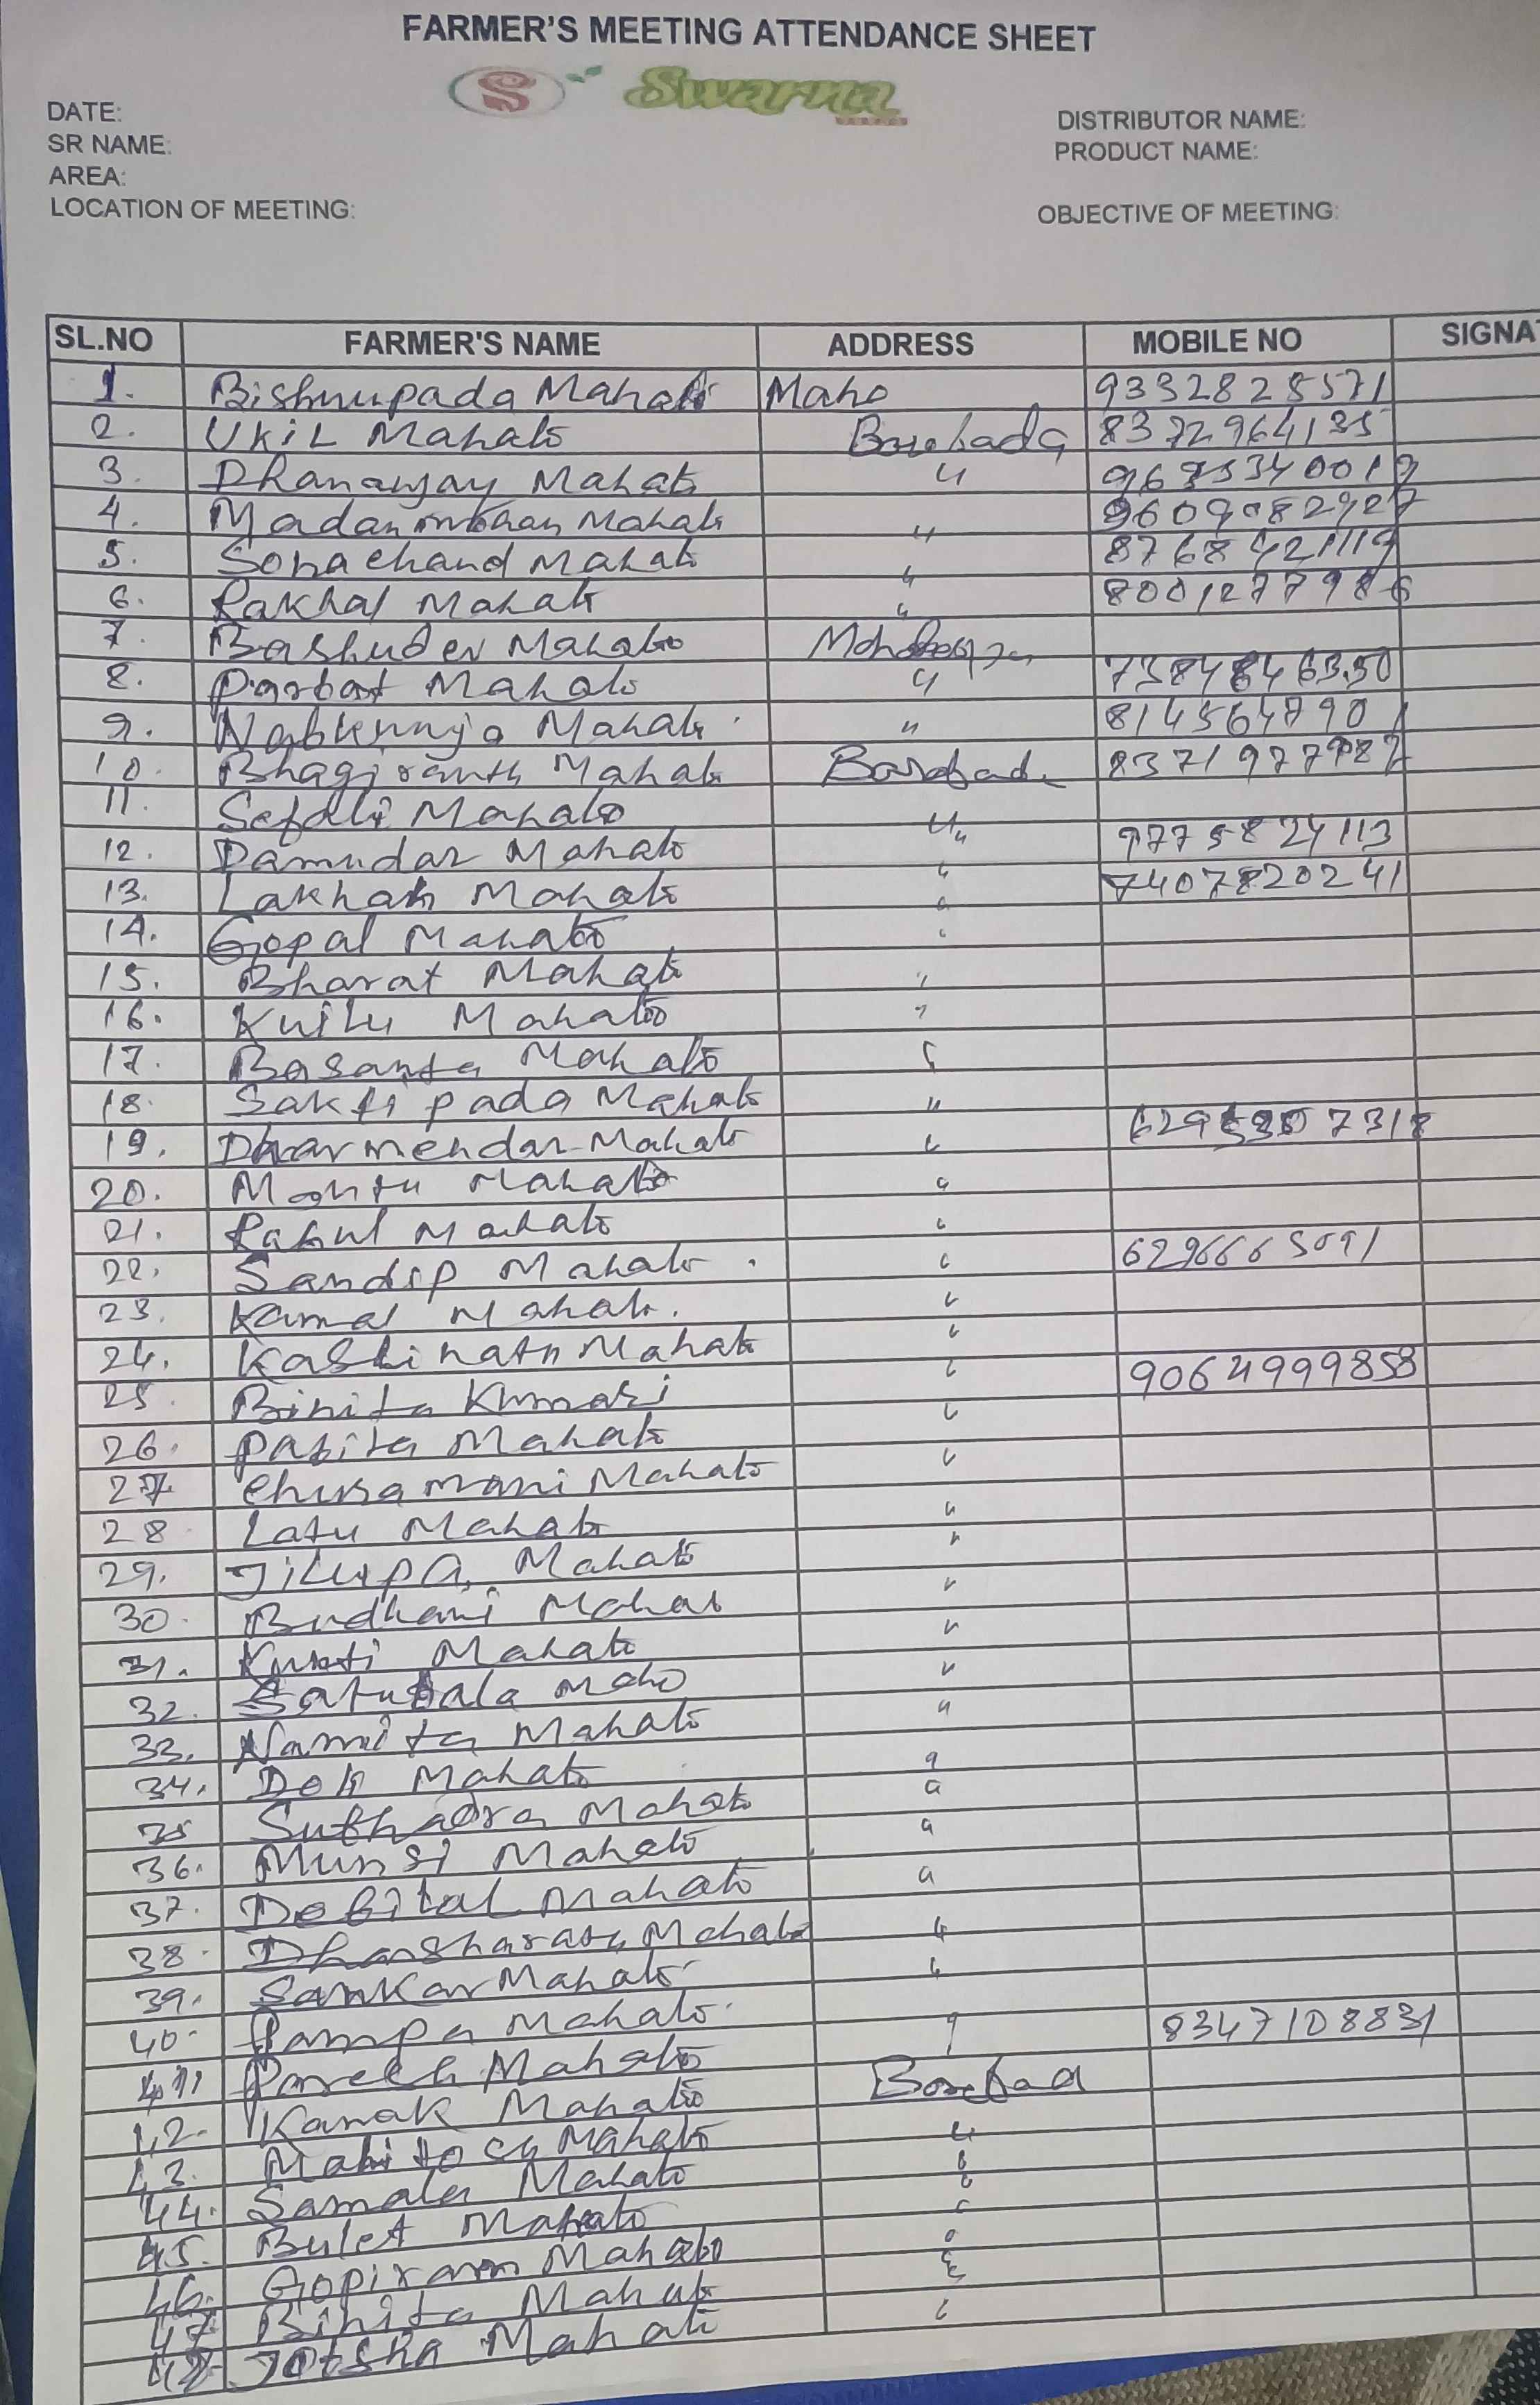 FARMER'S MEETING ATTENDANCE SHEET
S Swarna
DATE:
DISTRIBUTOR NAME:
SR NAME:
PRODUCT NAME:
AREA:
LOCATION OF MEETING:
OBJECTIVE OF MEETING:
SL.NO FARMER'S NAME ADDRESS MOBILE NO SIGNA
1. Bishnupada Mahato Maho 9332828571
2. Ukil Mahato Barebada 8372964135
3. Dhananjay Mahato " 9695340019
4. Madanmohan Mahato " 9609082927
5. Sonachand Mahato " 8768421119
6. Rakhal Mahato " 8001277986
7. Bashudev Mahato
8. Parbat Mahato " 7384846350
9. Nabkunja Mahato " 814564790
10. Bhagiranth Mahato 8371977987
11. Sefali Mahato "
12. Damudar Mahato " 9775824113
13. Lakhan Mahato " 7407820241
14. Gopal Mahato "
15. Bharat Mahato "
16. Kuilu Mahato "
17. Basanta Mahato "
18. Saktipada Mahato "
19. Dharmendar Mahato " 7318
20. Montu Mahato "
21. Rahul Mahato "
22. Sandip Mahato " 6296665091
23. Kamal Mahato. "
24. Kashinath Mahato "
25. Binita Kumari " 9064999858
26. Pabita Mahato "
27 Churamani Mahato "
28 Latu Mahato "
29. Mahato "
30. Budhani Mahato "
31. Mahato "
32. Satubala Maho "
33. Namita Mahato "
34. Mahato "
35 Subhadra Mahato "
36. Munsi Mahato "
37. Debilal Mahato "
38. Mahato "
39. Sankar Mahato "
40. Pampa Mahato " 8347108831
41 Mahato
42. Kanak Mahato "
43. Mahato "
44. Samala Mahato "
45. Bulet Mahato "
46. Gopiram Mahato "
47 Binita Mahato "
48 Mahato "